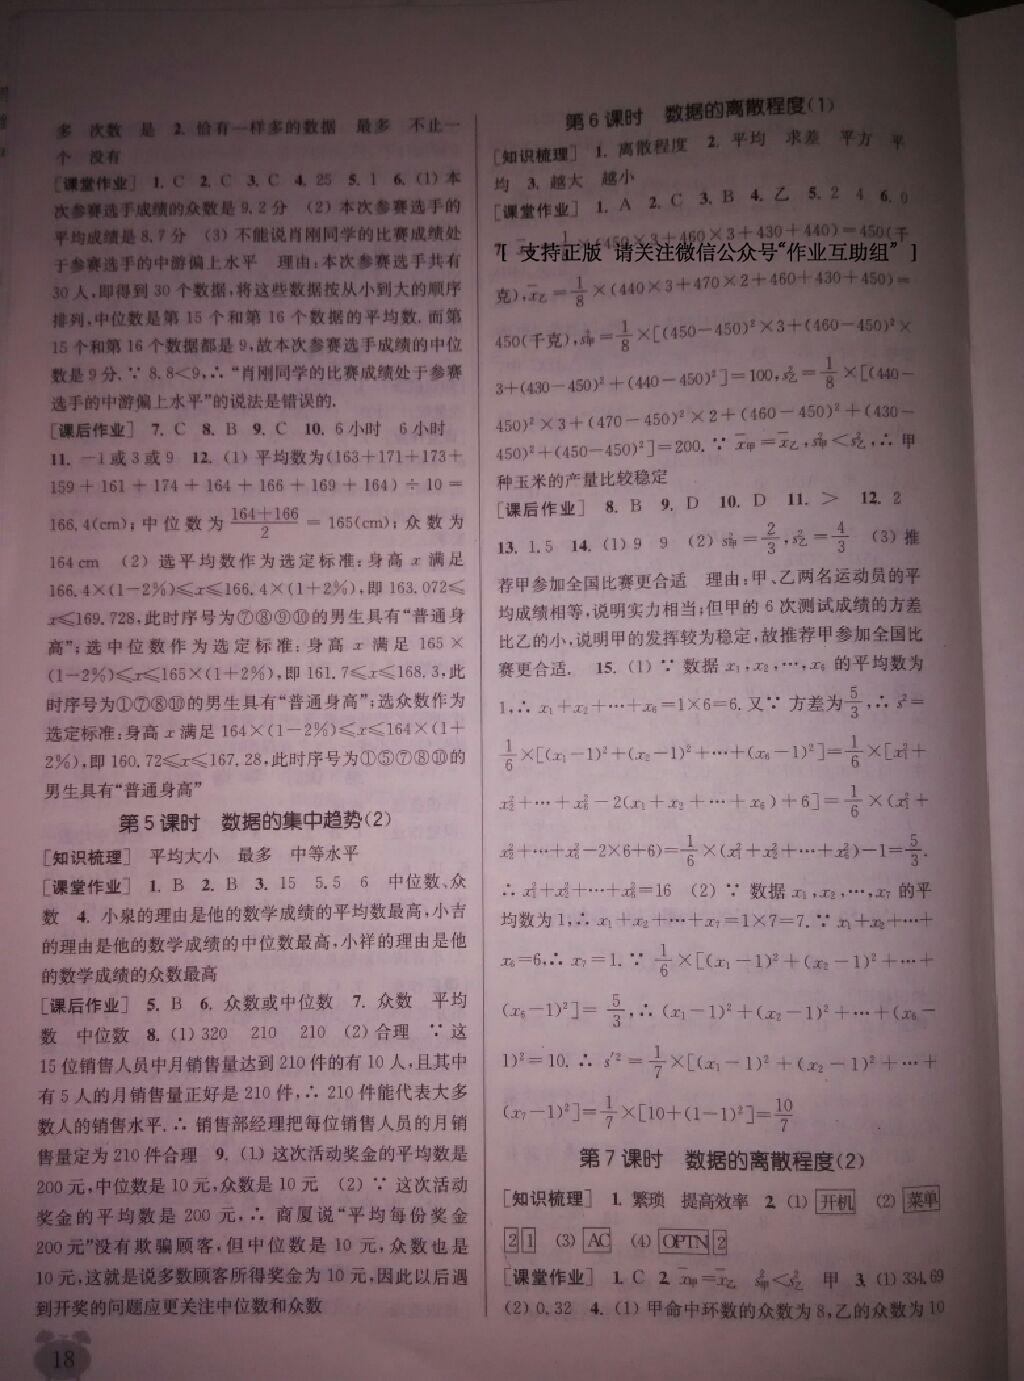 多 次数 是 2. 恰有一样多的数据 最多 不止一
个 没有
[课堂作业] 1. C 2. C 3. C 4. 25 5. 1 6. (1) 本
次参赛选手成绩的众数是 9.2 分 (2) 本次参赛选手的
平均成绩是 8.7 分 (3) 不能说肖刚同学的比赛成绩处
于参赛选手的中游偏上水平 理由:本次参赛选手共有
30 人,即得到 30 个数据,将这些数据按从小到大的顺序
排列,中位数是第 15 个和第 16 个数据的平均数. 而第
15 个和第 16 个数据都是 9,故本次参赛选手成绩的中位
数是 9 分. ∵ 8.8<9,∴ “肖刚同学的比赛成绩处于参赛
选手的中游偏上水平”的说法是错误的.
[课后作业] 7. C 8. B 9. C 10. 6 小时 6 小时
11. -1 或 3 或 9 12. (1) 平均数为(163+171+173+
159+161+174+164+166+169+164)÷10=
166.4(cm); 中位数为 (164+166)/2 = 165(cm); 众数为
164 cm (2) 选平均数作为选定标准:身高 x 满足
166.4×(1-2%)≤x≤166.4×(1+2%),即 163.072≤
x≤169.728,此时序号为⑦⑧⑨⑩的男生具有“普通身
高”;选中位数作为选定标准:身高 x 满足 165×
(1-2%)≤x≤165×(1+2%),即 161.7≤x≤168.3,此
时序号为①⑦⑧⑩的男生具有“普通身高”;选众数作为
选定标准:身高 x 满足 164×(1-2%)≤x≤164×(1+
2%),即 160.72≤x≤167.28,此时序号为①⑤⑦⑧⑩的
男生具有“普通身高”
第 5 课时 数据的集中趋势(2)
[知识梳理] 平均大小 最多 中等水平
[课堂作业] 1. B 2. B 3. 15 5.5 6 中位数、众
数 4. 小泉的理由是他的数学成绩的平均数最高,小吉
的理由是他的数学成绩的中位数最高,小祥的理由是他
的数学成绩的众数最高
[课后作业] 5. B 6. 众数或中位数 7. 众数 平均
数 中位数 8. (1) 320 210 210 (2) 合理 ∵ 这
15 位销售人员中月销售量达到 210 件的有 10 人,且其中
有 5 人的月销售量正好是 210 件,∴ 210 件能代表大多
数人的销售水平. ∴ 销售部经理把每位销售人员的月销
售量定为 210 件合理 9. (1) 这次活动奖金的平均数是
200 元,中位数是 10 元,众数是 10 元 (2) ∵ 这次活动
奖金的平均数是 200 元,∴ 商厦说“平均每份奖金
200 元”没有欺骗顾客,但中位数是 10 元,众数也是
10 元,这就是说多数顾客所得奖金为 10 元,因此以后遇
到开奖的问题应更关注中位数和众数
18
第 6 课时 数据的离散程度(1)
[知识梳理] 1. 离散程度 2. 平均 求差 平方 平
均 3. 越大 越小
[课堂作业] 1. A 2. C 3. B 4. 乙 5. 2 4 6. 0
×(450×3+460×3+430+440)=450(千
[ 支持正版 请关注微信公众号“作业互助组” ]
克),x̄乙=1/8×(440×3+470×2+460+430+450)=
450(千克),s²甲=1/8×[(450-450)²×3+(460-450)²×
3+(430-450)²+(440-450)²]=100,s²乙=1/8×[(440-
450)²×3+(470-450)²×2+(460-450)²+(430-
450)²+(450-450)²]=200. ∵ x̄甲=x̄乙,s²甲<s²乙,∴ 甲
种玉米的产量比较稳定
[课后作业] 8. B 9. D 10. D 11. > 12. 2
13. 1.5 14. (1) 9 9 (2) s²甲=2/3,s²乙=4/3 (3) 推
荐甲参加全国比赛更合适 理由:甲、乙两名运动员的平
均成绩相等,说明实力相当;但甲的 6 次测试成绩的方差
比乙的小,说明甲的发挥较为稳定,故推荐甲参加全国比
赛更合适. 15. (1) ∵ 数据 x₁,x₂,…,x₆ 的平均数为
1,∴ x₁+x₂+…+x₆=1×6=6. 又∵ 方差为5/3,∴ s²=
1/6×[(x₁-1)²+(x₂-1)²+…+(x₆-1)²]=1/6×[x₁²+
x₂²+…+x₆²-2(x₁+x₂+…+x₆)+6]=1/6×(x₁²+
x₂²+…+x₆²-2×6+6)=1/6×(x₁²+x₂²+…+x₆²)-1=5/3.
∴ x₁²+x₂²+…+x₆²=16 (2) ∵ 数据 x₁,x₂,…,x₇ 的平
均数为 1,∴ x₁+x₂+…+x₇=1×7=7. ∵ x₁+x₂+…+
x₆=6,∴ x₇=1. ∵ 1/6×[(x₁-1)²+(x₂-1)²+…+
(x₆-1)²]=5/3,∴ (x₁-1)²+(x₂-1)²+…+(x₆-
1)²=10. ∴ s′²=1/7×[(x₁-1)²+(x₂-1)²+…+
(x₇-1)²]=1/7×[10+(1-1)²]=10/7
第 7 课时 数据的离散程度(2)
[知识梳理] 1. 繁琐 提高效率 2. (1) 开机 (2) 菜单
2 1 (3) AC (4) OPTN 2
[课堂作业] 1. C 2. x̄甲=x̄乙 s²甲<s²乙 甲 3. (1) 334.69
(2) 0.32 4. (1) 甲命中环数的众数为 8,乙的众数为 10